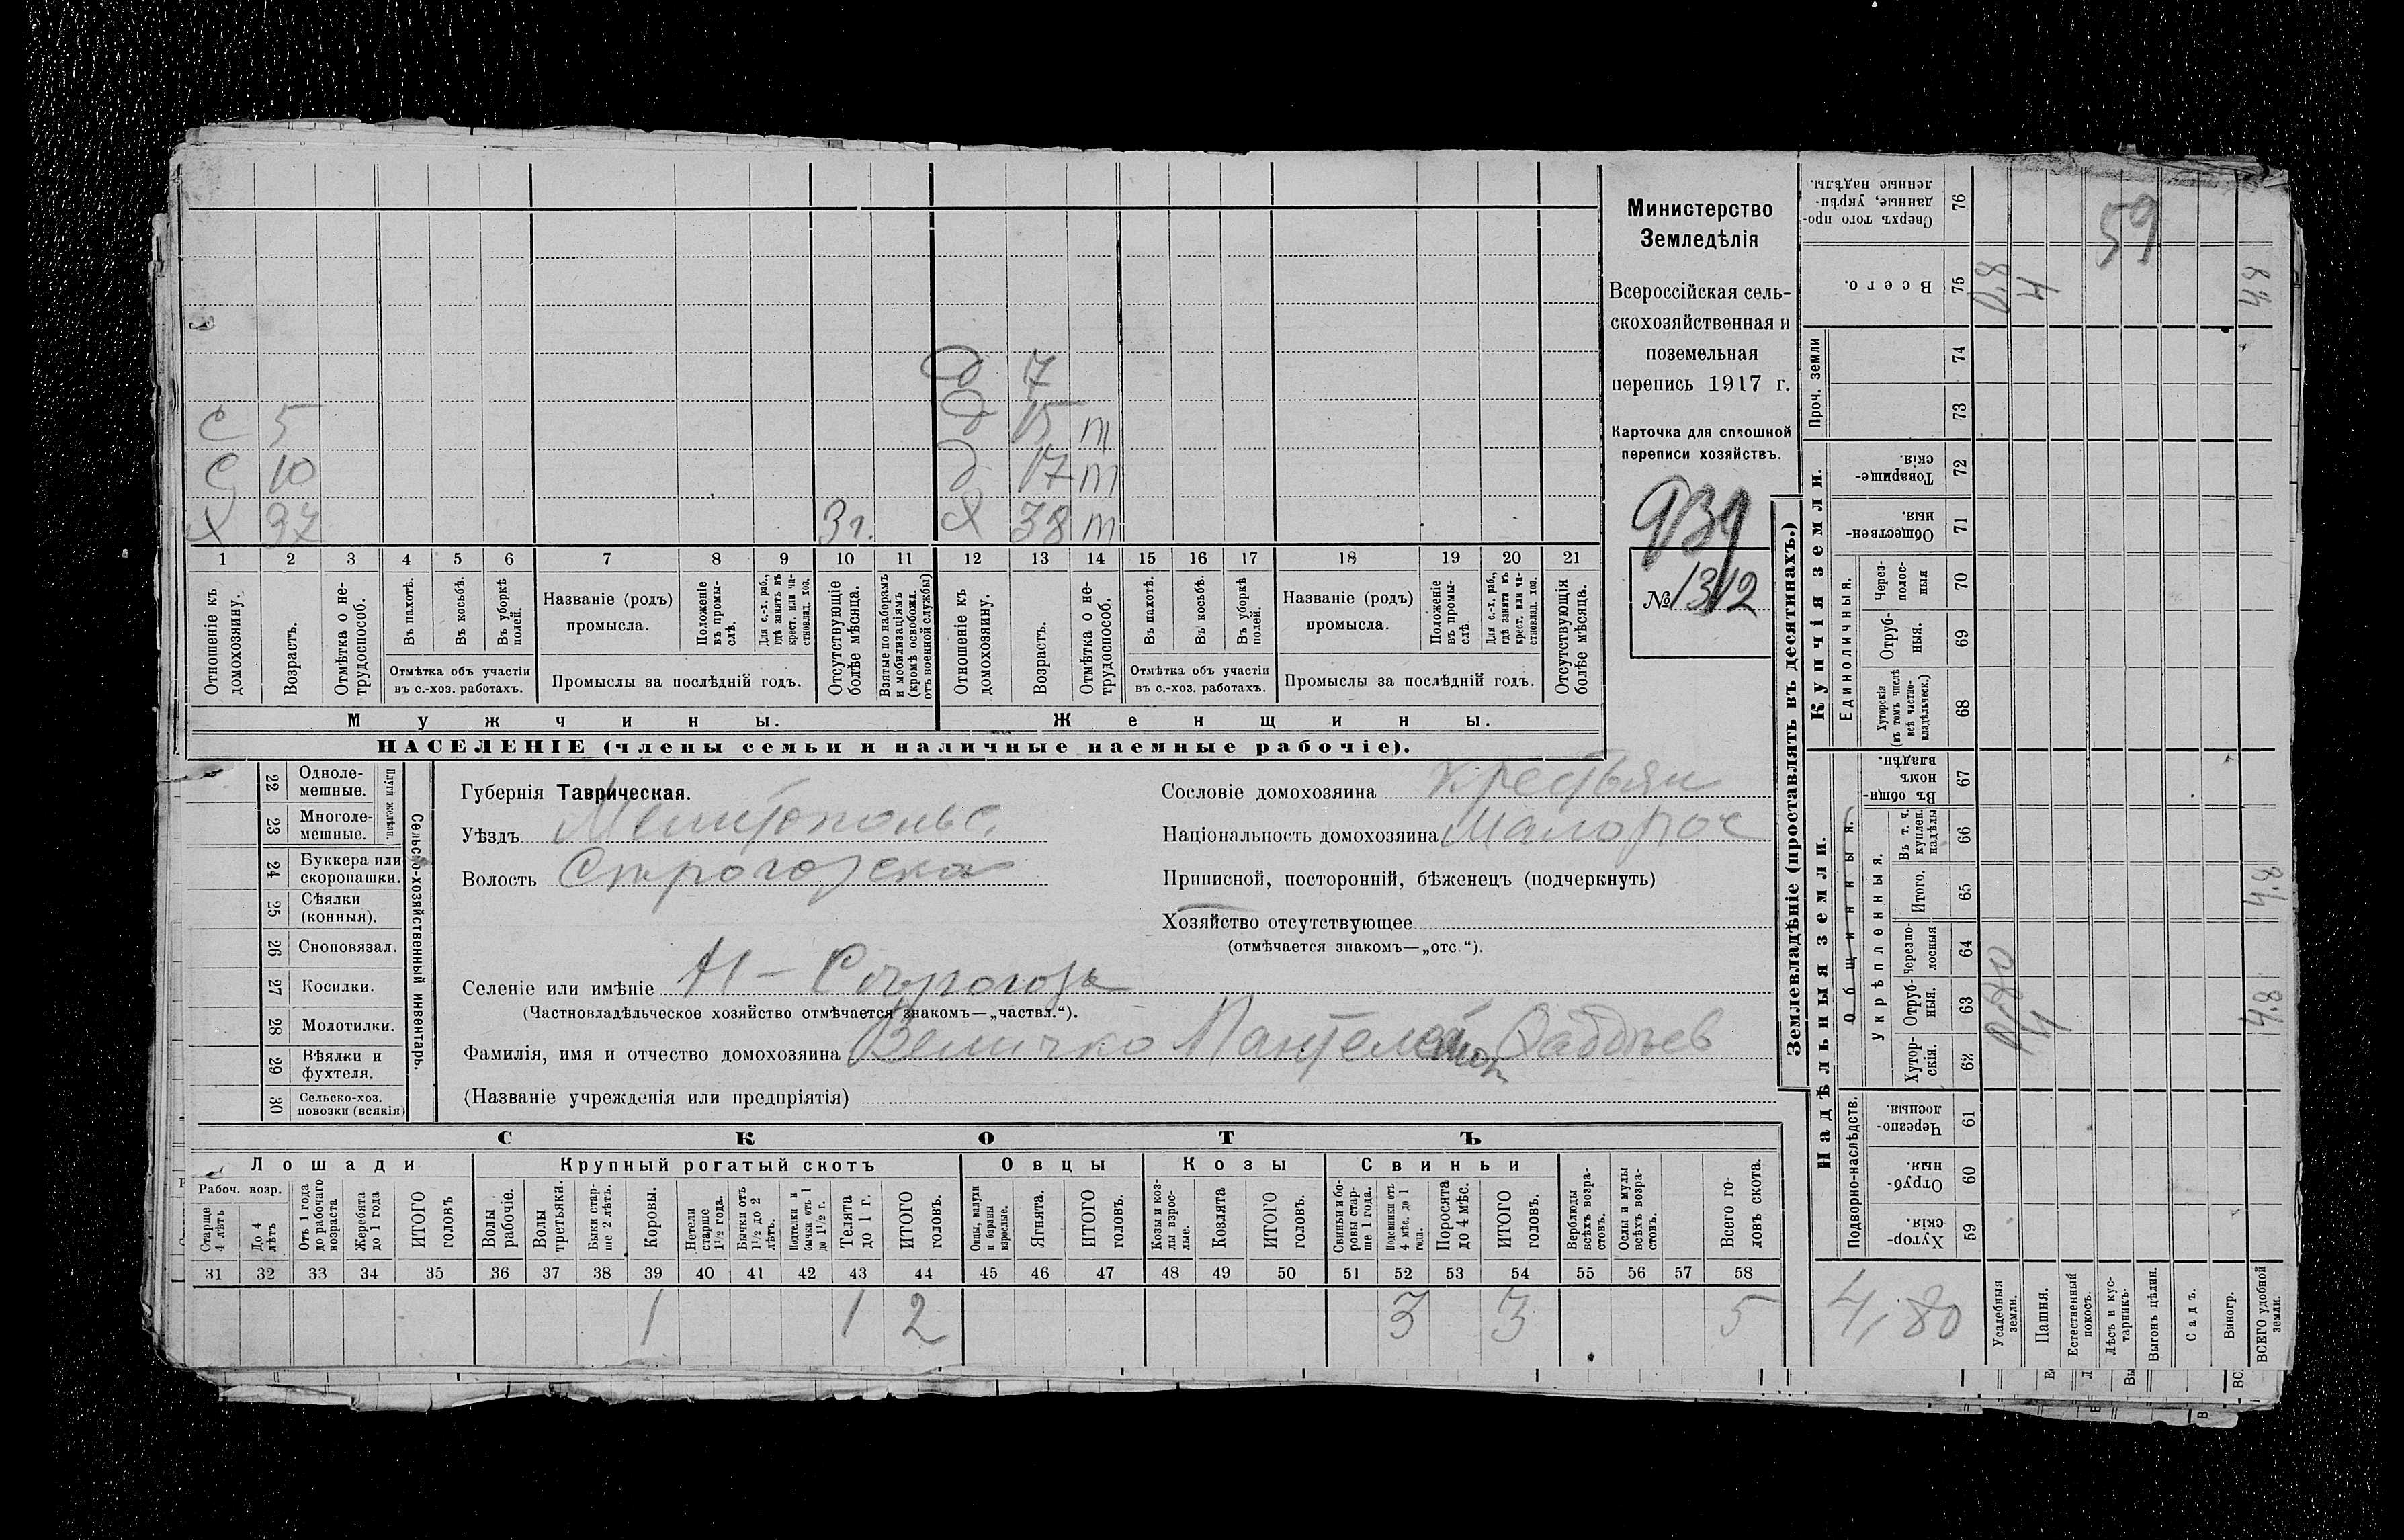 Министерство
Земледѣлія
Всероссійская сель-
скохозяйственная и
поземельная
перепись 1917 г.
Карточка для сплошной
переписи хозяйствъ.
939
№ 1312
д 7
с 5 д 15 т
с 10 д 17 т
х 37 3 г. х 38 т
1 2 3 4 5 6 7 8 9 10 11 12 13 14 15 16 17 18 19 20 21
Отношеніе къ домохозяину.
Возрастъ.
Отмѣтка о не-трудоспособ.
Въ пахотѣ.
Въ косьбѣ.
Въ уборкѣ полей.
Отмѣтка объ участіи
въ с.-хоз. работахъ.
Названіе (родъ)
промысла.
Положеніе въ промы-слѣ.
Для с.-х. раб., гдѣ занятъ въ крест. или ча-стновлад. хоз.
Промыслы за послѣдній годъ.
Отсутствующіе болѣе мѣсяца.
Взятые по наборамъ и мобилизаціямъ (кромѣ освобожд. отъ военной службы)
Отношеніе къ домохозяину.
Возрастъ.
Отмѣтка о не-трудоспособ.
Въ пахотѣ.
Въ косьбѣ.
Въ уборкѣ полей.
Отмѣтка объ участіи
въ с.-хоз. работахъ.
Названіе (родъ)
промысла.
Положеніе въ промы-слѣ.
Для с.-х. раб., гдѣ занята въ крест. или ча-стновлад. хоз.
Промыслы за послѣдній годъ.
Отсутствующія болѣе мѣсяца.
Мужчины.
Женщины.
НАСЕЛЕНІЕ (члены семьи и наличные наемные рабочіе).
22 Одноле-мешные.
23 Многоле-мешные.
Плуги желѣзн.
24 Буккера или скоропашки.
25 Сѣялки (конныя).
26 Сноповязал.
27 Косилки.
28 Молотилки.
29 Вѣялки и фухтеля.
30 Сельско-хоз. повозки (всякія)
Сельско-хозяйственный инвентарь.
Губернія Таврическая.
Уѣздъ Мелитопольс.
Волость Строгозска
Селеніе или имѣніе Н-Строгозы
(Частновладѣльческое хозяйство отмѣчается знакомъ—„частвл.“).
Фамилія, имя и отчество домохозяина Величко Пантелеймон
(Названіе учрежденія или предпріятія)
Сословіе домохозяина Крестьян
Національность домохозяина Малорос
Приписной, посторонній, бѣженецъ (подчеркнуть)
Хозяйство отсутствующее
(отмѣчается знакомъ—„отс.“).
СКОТЪ
Лошади
Крупный рогатый скотъ
Овцы
Козы
Свиньи
Рабоч. возр.
Старше 4 лѣтъ
До 4 лѣтъ
Отъ 1 года до рабочаго возраста
Жеребята до 1 года
ИТОГО головъ
Волы рабочіе.
Волы третьяки.
Быки стар-ше 2 лѣтъ.
Коровы.
Нетели старше 1½ года.
Бычки отъ 1½ до 2 лѣтъ.
Подтелки и бычки отъ 1 до 1½ г.
Телята до 1 г.
ИТОГО головъ.
Овцы, валухи и бараны взрослые.
Ягнята.
ИТОГО головъ.
Козы и коз-лы взрос-лые.
Козлята
ИТОГО головъ.
Свиньи и бо-ровы стар-ше 1 года.
Подсвинки отъ 4 мѣс. до 1 года.
Поросята до 4 мѣс.
ИТОГО головъ.
Верблюды всѣхъ возра-стовъ.
Ослы и мулы всѣхъ возра-стовъ.
Всего го-ловъ скота.
31 32 33 34 35 36 37 38 39 40 41 42 43 44 45 46 47 48 49 50 51 52 53 54 55 56 57 58
1 1 2 3 3 5
Землевладѣніе (проставлять въ десятинахъ.)
Надѣльныя земли.
Купчія земли.
Проч. земли
Подворно-наслѣдств.
Общинныя.
Укрѣпленныя.
Единоличныя.
Сверхъ того про-данные, укрѣп-ленные надѣлы. 76
Всего. 75
74
73
Товарище-скія. 72
Обществен-ныя. 71
Через-полос-ныя 70
Отруб-ныя. 69
Хуторскія (въ томъ числѣ всѣ частно-владѣльческ.) 68
Въ общин-номъ владѣн. 67
Въ т. ч. куплен. надѣлы 66
Итого. 65
Черезпо-лосныя 64
Отруб-ныя. 63
Хутор-скія. 62
Черезпо-лосныя. 61
Отруб-ныя. 60
Хутор-скія. 59
Усадебныя земли.
Пашня.
Естественный покосъ.
Лѣсъ и кус-тарникъ.
Выгонъ цѣлин.
Садъ.
Виногр.
ВСЕГО удобной земли.
59
0,8
4
4,8
0,80
4
4.8
4.8
4,80